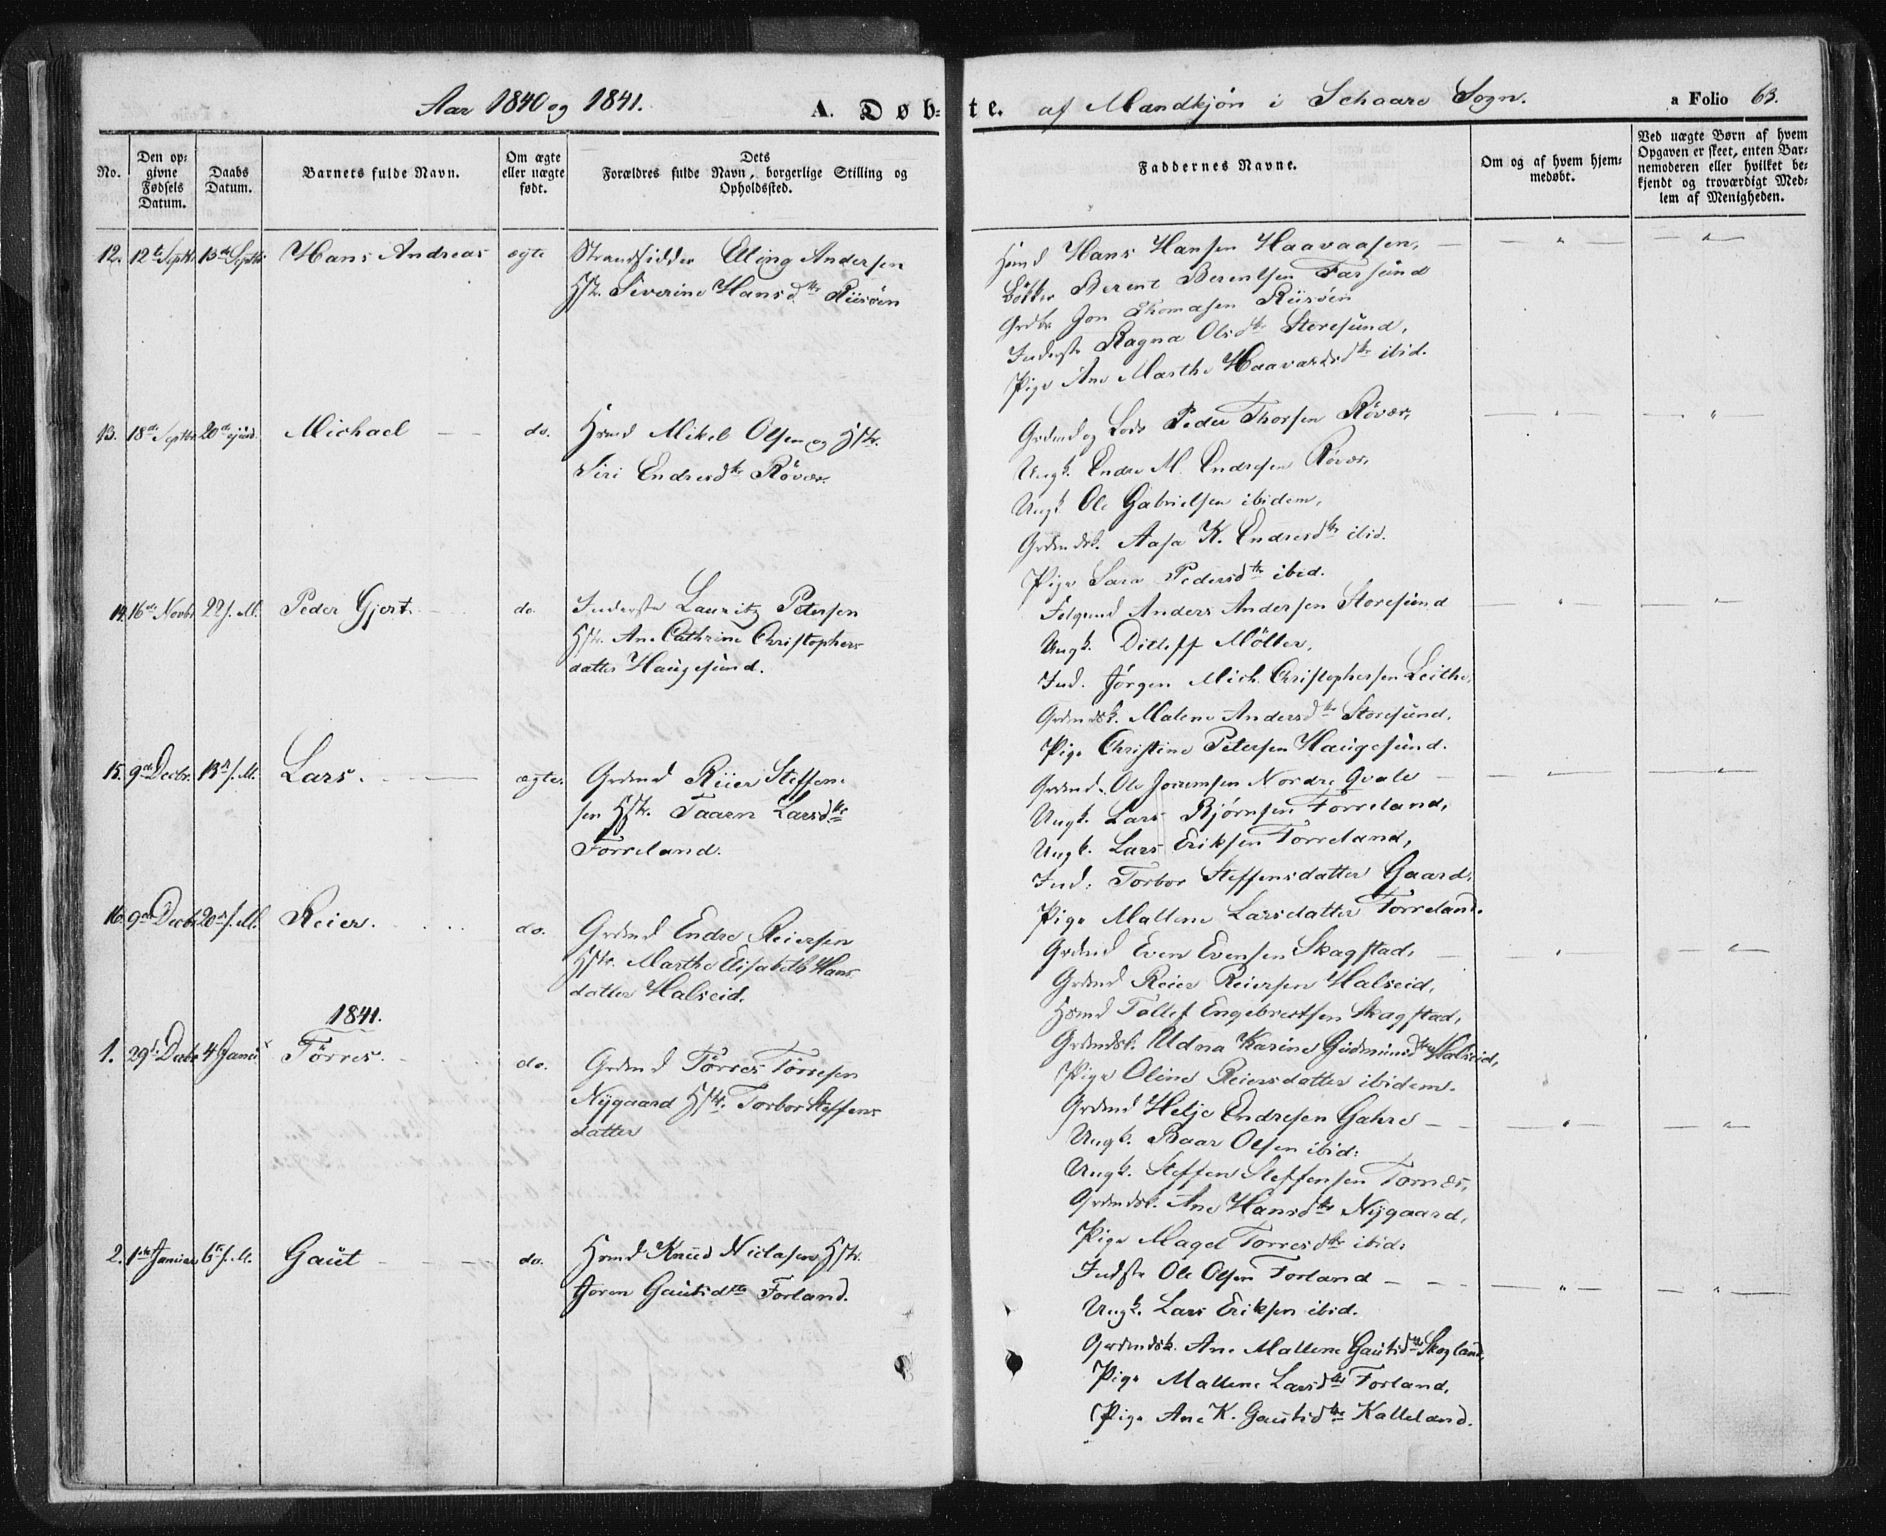 Aar 1840 og 1841. A. Døb- te. af Mandkjøn i Schaare Sogn. a Folio 63.
No.
Den op-
givne
Fødsels
Datum.
Daabs
Datum.
Barnets fulde Navn.
Om ægte
eller uægte
født.
Dets
Forældres fulde Navn, borgerlige Stilling og
Opholdssted.
Faddernes Navne.
Om og af hvem hjem-
medøbt.
Ved uægte Børn af hvem
Opgaven er skeet, enten Bar-
nemoderen eller hvilket be-
kjendt og troværdigt Med-
lem af Menigheden.
12. 12te Septbr 13de Septbr Hans Andreas ægte
Strandsidder Eling Andersen
Hstr. Severine Hansdtr Riisøen
Hsmd Hans Hansen Haavaasen,
Bøkker Berent Berentsen Farsund
Grdbr Jon Thomasen Riisøen
Inderste Ragna Olsdtr Storesund,
Pige Ane Marthe Haavardsdtr ibid.
13. 18de Septbr 20de ejusd. Michael do.
Hsmd Mikel Olsen og Hstr.
Siri Endresdtr Røvær.
Grdmd og Lods Peder Thorsen Røvær,
Ungk. Endre M. Endresen Røvær,
Ungk. Ole Gabrielsen ibidem,
Grdmdsk. Aasa K. Endresdtr ibid.
Pige Sara Pedersdtr ibid.
14. 16de Novbr 22 s. M. Peder Gjert. do.
Inderste Lauritz Petersen
Hstr. Ane Cathrine Christophers
datter Haugesund.
Folgemd Anders Andersen Storesund
Ungk. Ditleff Möller,
Ind. Jørgen Mich. Christophersen Leithe,
Grdmdsk. Malene Andersdtr Storesund.
Pige Christine Petersen Haugesund.
15. 9de Decbr. 13de s. M. Lars. ægte.
Grdmd Riier Steffen-
sen Hstr. Taarn Larsdtr
Førreland.
Grdmd. Ole Joremsen Nordre Qvale
Ungk. Lars Bjørnsen Førreland,
Ungk. Lars Eriksen Førreland,
Ind. Torbor Steffensdatter Gaard,
Pige Mallene Larsdatter Førreland.
16. 9de Decbr 20de s. M. Reier. do.
Grdmd Endre Reiersen
Hstr. Marthe Elisabeth Hans
datter Halseid.
Grdmd Even Evensen Skagstad,
Grdmd Reier Reiersen Halseid,
Hsmd Tollef Engebretsen Skagstad,
Grdmdsk. Udna Karine Gudmundsdtr Halseid,
Pige Oline Reiersdatter ibidem.
1841.
1. 29de Decbr 4 Januar Tørres. do.
Grdmd Tørres Tørresen
Nygaard Hstr. Torbor Steffens
datter
Grdmd Helje Endresen Gahre
Ungk. Baar Olsen ibid:
Ungk. Steffen Steffensen Tornes,
Grdmdsk. Ane Hansdtr Nygaard,
Pige Magel Torresdtr ibid.
2. 1ste Januar 6te s. M. Gaut do.
Hsmd Knud Niclasen Hstr.
Joren Gautsdtr Forland.
Indste Ole Olsen Forland
Ungk. Lars Eriksen ibid.
Grdmdsk. Ane Mallene Gautsdtr Skogland,
Pige Mallene Larsdtr Forland,
Pige Ane K. Gautsdtr Kalleland.